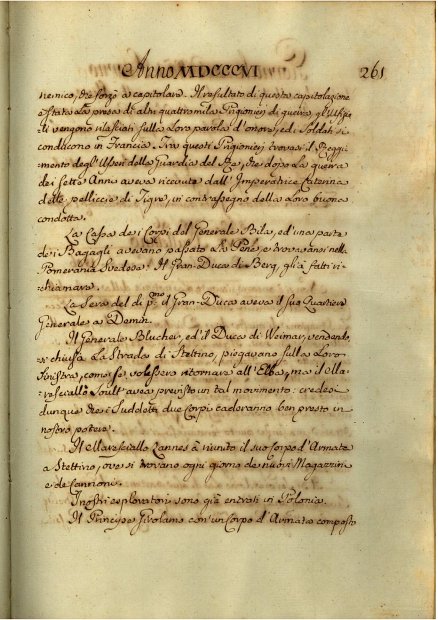 Anno MDCCCVI 261
nemico, che forzò a capitolare. Il resultato di questa capitolazione
è stata la presa di altri quattromila Prigionieri di guerra, gl'Uffizi=
li vengono rilasciati sulla loro parola d'onore, ed i Soldati si
conducono in Francia. Tra questi Prigionieri trovasi il Reggi=
mento degl'Usseri della Guardia del Re, che dopo la guerra
dei sette Anni aveva ricevuta dall'Imperatrice Caterina
delle pelliccie di Tigre, in contrassegno della loro buona
condotta.
La Cassa dei Corpi del Generale Bila, ed una parte
dei Bagagli avevano passato la Pene, e trovavansi nella
Pomerania Svedese: Il Gran-Duca di Berg, gli à fatti ri=
chiamare.
La Sera del dì p.mo il Gran-Duca aveva il suo Quartiere
Generale a Demin.
Il Generale Blucher, ed il Duca di Weimar, vendendo=
si chiusa la Strada di Stettino, piegavano sulla loro
sinistra, come se volessero ritornare all'Elba, ma il Ma=
resciallo Soult avea previsto un tal movimento: credesi
dunque che i suddetti due Corpi caderanno ben presto in
nostro potere.
Il Maresciallo Lannes à riunito il suo Corpo d'Armata
a Stettino, ove si trovano ogni giorno de nuovi Magazzini
e de cannoni.
I nostri esploratori sono già entrati in Polonia.
Il Principe Girolamo con un Corpo d'Armata composto